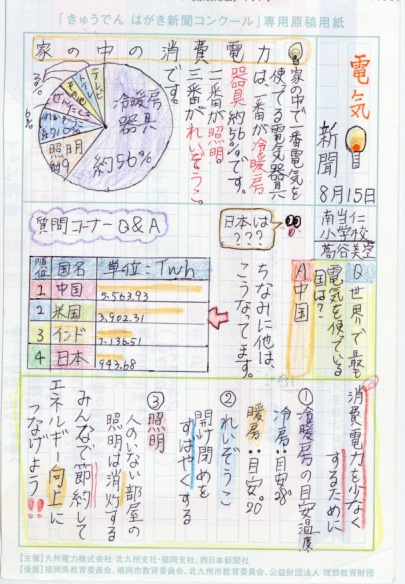 「きゅうでん はがき新聞コンクール」専用原稿用紙
電気
新聞
8月15日
南当仁
小学校
家の中の消費電力
家の中で一番電気を
使ってる電気器具
は、一番が冷暖房
器具約56%です。
二番が照明。
三番がれいぞうこ。
です。
冷暖房
器具
約56%
照明
テレビ
質問コーナーQ&A
日本は
???
Q世界で最も
電気を使っている
国は?
A中国
ちなみに他は、
こうなってます。
順位 国名 単位:Twh
1 中国 5.563.93
2 米国 3.902.31
3 インド 1.136.51
4 日本 943.68
消費電力を少なく
するために
①冷暖房の目安温度
冷房:目安28°
暖房:目安。20
②れいぞうこ
開け閉めを
すばやくする
③照明
人のいない部屋の
照明は消灯する
みんなで節約して
エネルギー向上に
つなげよう!!
【主催】九州電力株式会社 北九州支社・福岡支社、西日本新聞社
【後援】福岡県教育委員会、福岡市教育委員会、北九州市教育委員会、公益財団法人 理想教育財団